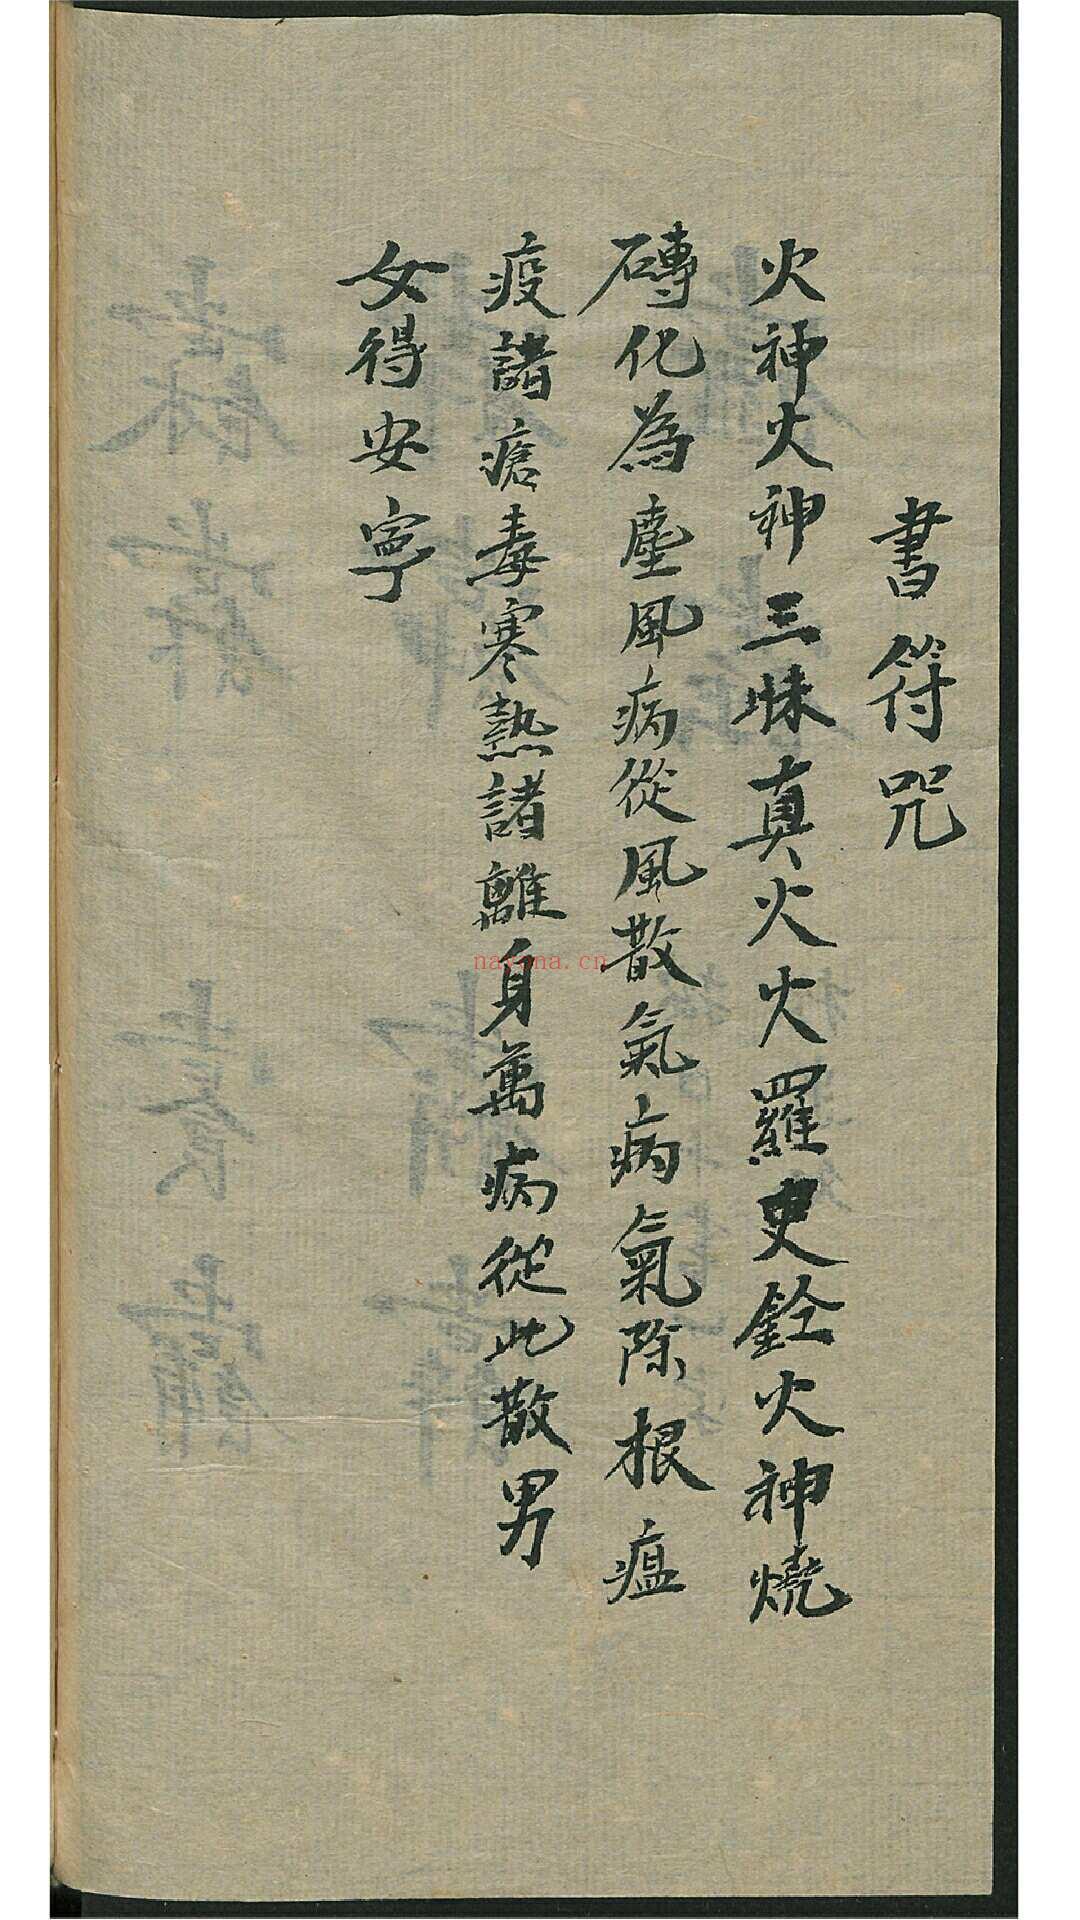 書符咒
火神火神三昧真火火羅史銓火神燒
磚化為塵風病從風散氣病氣除根瘟
疫諸瘡毒寒熱諸離身萬病從此散男
女得安寧
nayona.cn